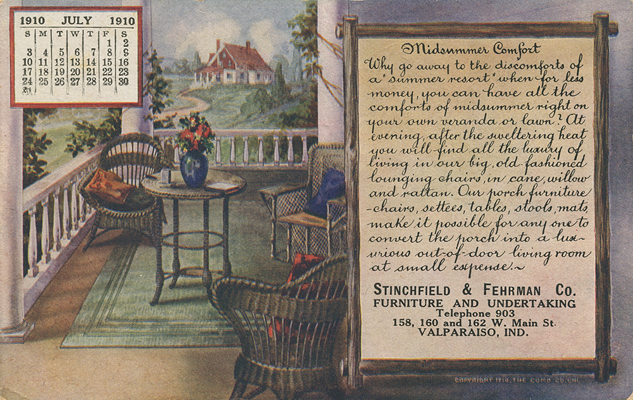 1910 JULY 1910
S M T W T F S
1 2
3 4 5 6 7 8 9
10 11 12 13 14 15 16
17 18 19 20 21 22 23
24 25 26 27 28 29 30
31
Midsummer Comfort
Why go away to the discomforts of
a "summer resort" when for less
money, you can have all the
comforts of midsummer right on
your own veranda or lawn? At
evening, after the sweltering heat
you will find all the luxury of
living in our big, old fashioned
lounging chairs, in cane, willow
and rattan. Our porch furniture
-chairs, settees, tables, stools, mats,
make it possible for any one to
convert the porch into a lux-
urious out-of-door living room
at small expense.~
STINCHFIELD & FEHRMAN CO.
FURNITURE AND UNDERTAKING
Telephone 903
158, 160 and 162 W. Main St.
VALPARAISO, IND.
COPYRIGHT 1910, THE CO. CHI.